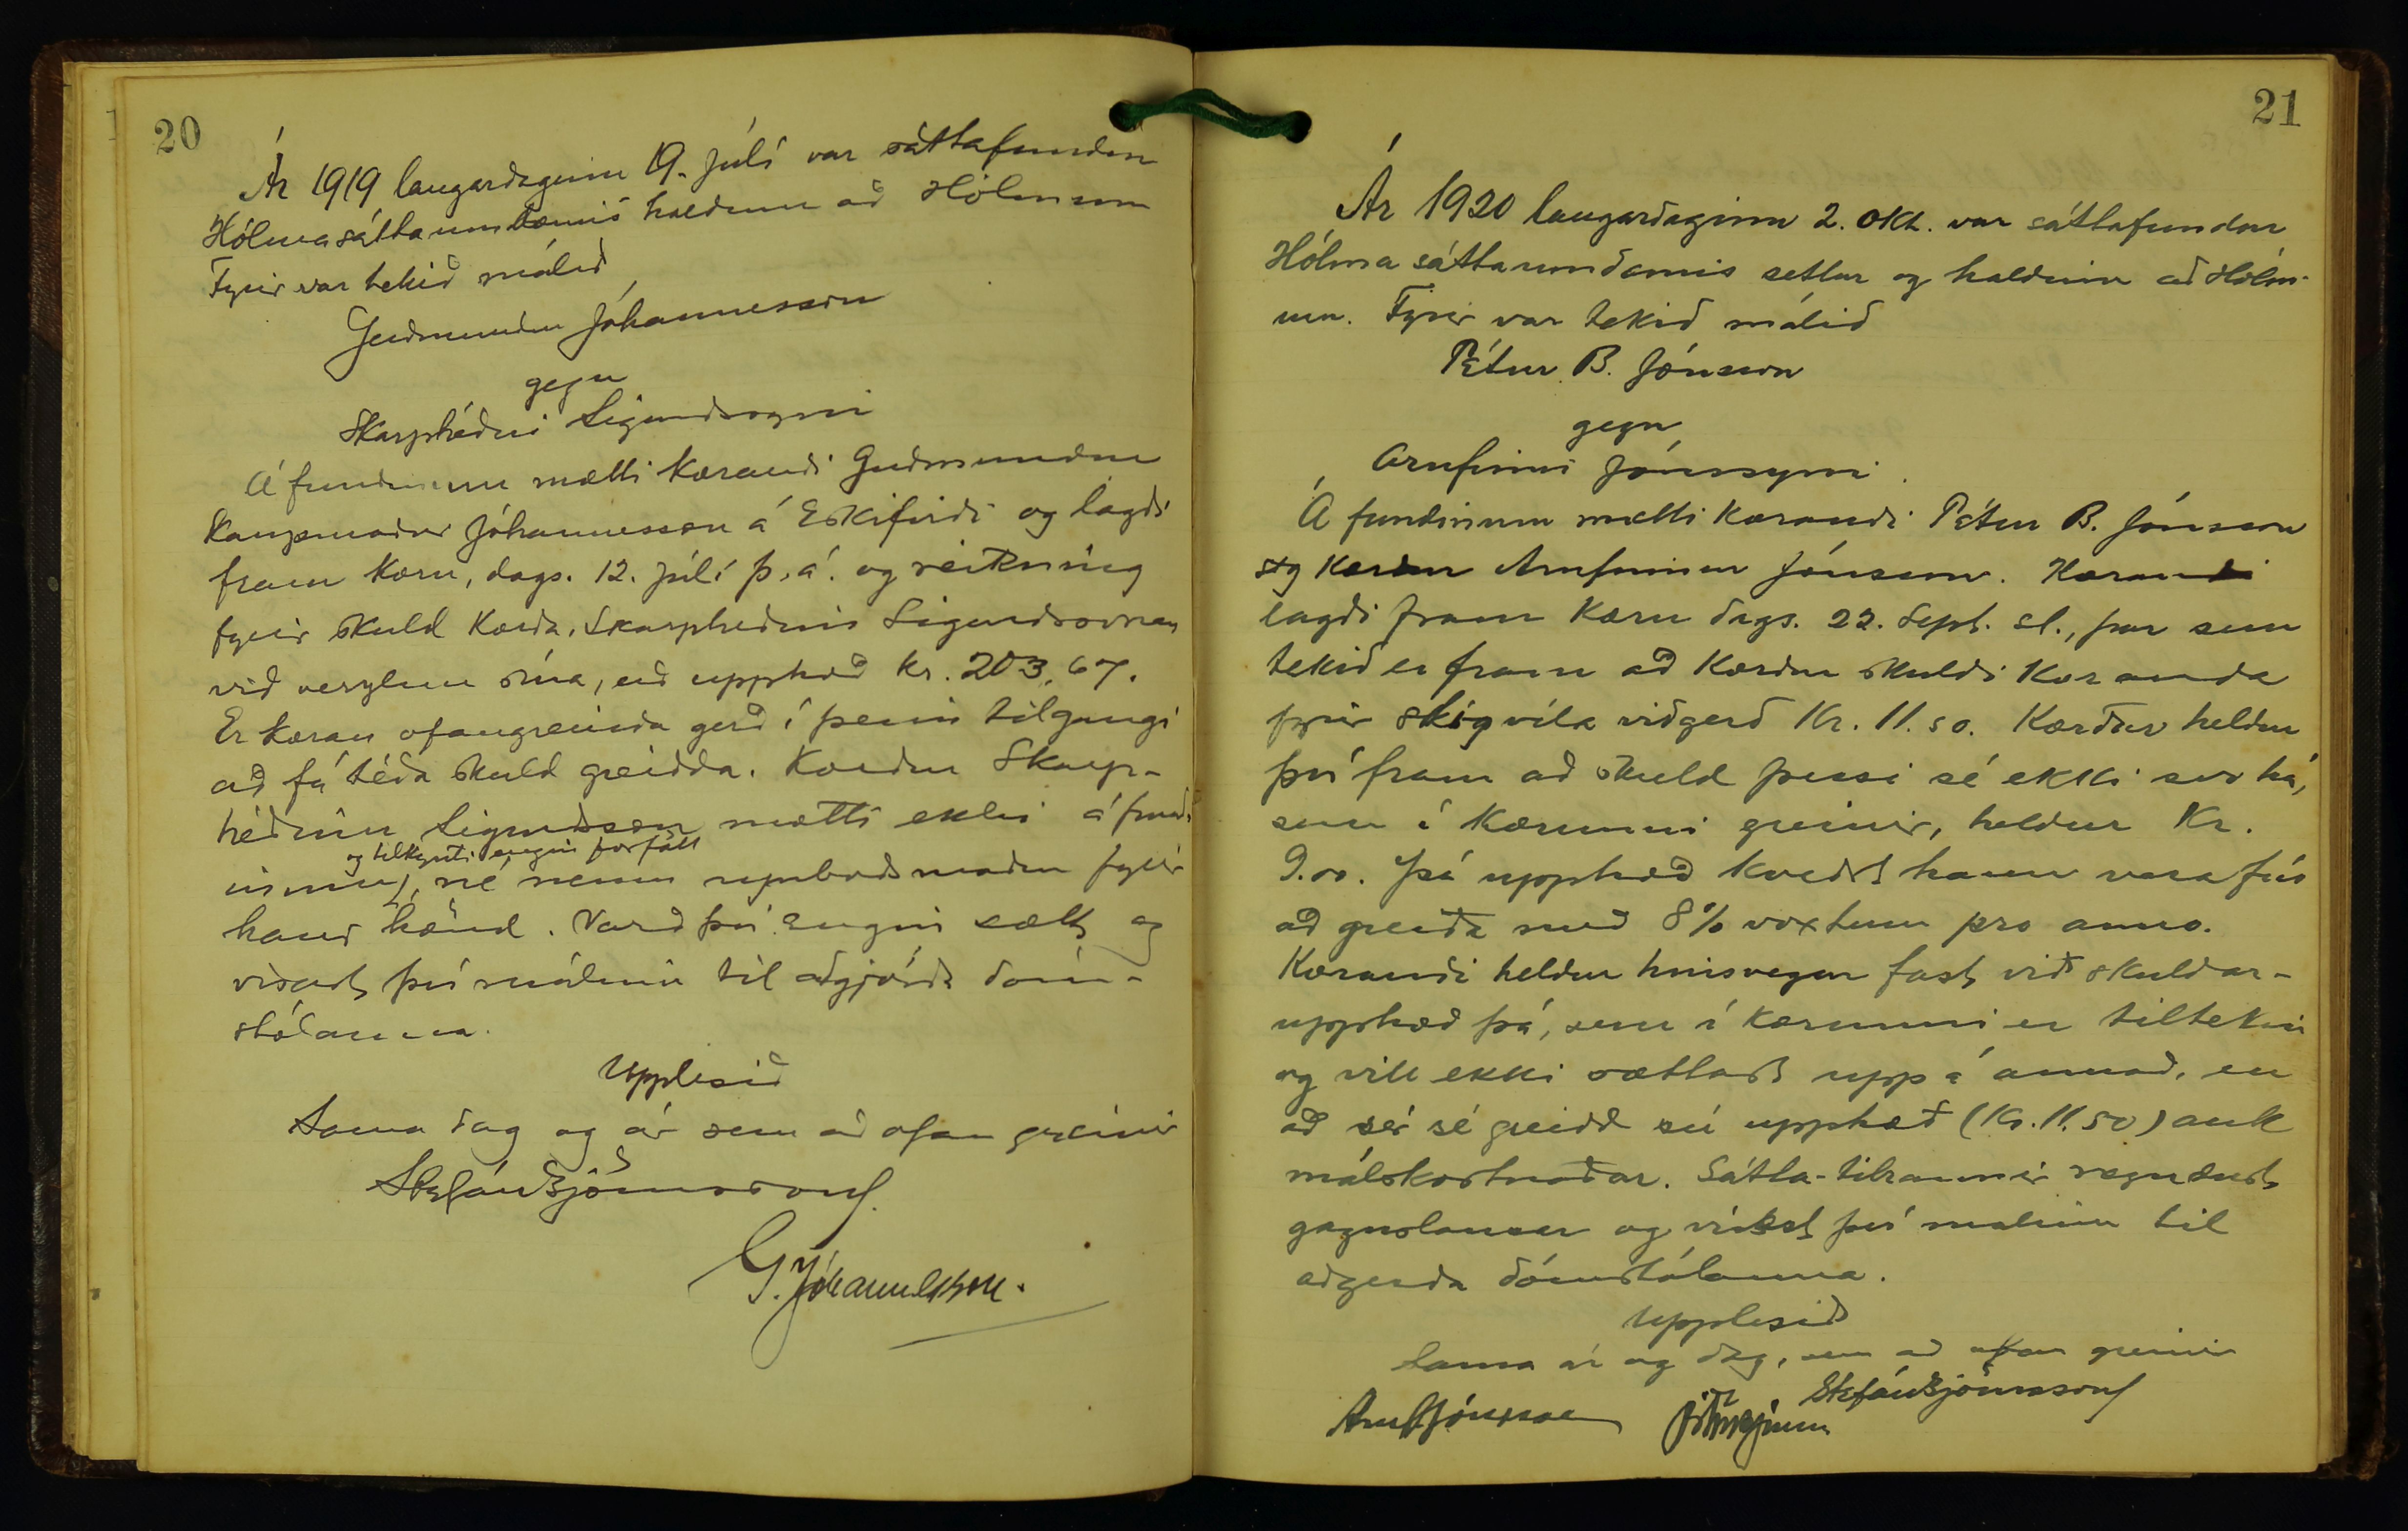 20
Ár 1919 laugardaginn 19. júlí var sáttafundur
Hólmasáttaumdæmis haldinn að Hólmum
Fyrir var tekið málið
Guðmundur Jóhannesson
gegn
Skarphéðni Sigurðssyni
Á fundinum mætti kærandi Guðmundur
kaupmaður Jóhannesson á Eskifirði og lagði
fram kæru, dags. 12. júlí þ. á. og reikning
fyrir skuld kærða, Skarphéðins Sigurðssonar
við verzlun sína, að upphæð kr. 203,67.
Er kæran ofangreinda gerð í þeim tilgangi
að fá téða skuld greidda. Kærður Skarp-
héðinn Sigurðsson mætti ekki á fund-
og tilkynti engin forföll
inum, né neinn umboðsmaður fyrir
hans hönd. Varð því engin sætt og
vísast því málinu til aðgjörða dóm-
stólanna.
Upplesið
Sama dag og ár sem að ofan greinir
Stefán Björnsson
G. Jóhannesson.
21
Ár 1920 laugardaginn 2. okt. var sáttafundur
Hólma sáttaumdæmis settur og haldinn að Hólm-
um. Fyrir var tekið málið
Pétur B. Jónsson
gegn
Arnfinni Jónssyni.
Á fundinum mætti kærandi Pétur B. Jónsson
og kærður Arnfinnur Jónsson. Kærandi
lagði fram kæru dags. 22. Sept. sl., þar sem
tekið er fram að kærður skuldi kæranda
fyrir stígvéla viðgerð Kr. 11.50. Kærður heldur
því fram að skuld þessi sé ekki svo há,
sem í kærunni greinir, heldur Kr.
9.00. Þá upphæð kveðst hann vera fús
að greiða með 8% vöxtum pro anno.
Kærandi heldur hinsvegar fast við skuldar-
upphæð þá, sem í kærunni er tiltekin
og vill ekki sættast upp á annað, en
að sér sé greidd sú upphæð (Kr. 11.50) auk
málskostnaðar. Sátta-tilraunir reyndust
gagnslausar og vísast því málinu til
aðgerða dómstólanna.
Upplesið
Sama ár og dag, sem að ofan greinir
Stefán Björnsson
Arnf Jónsson